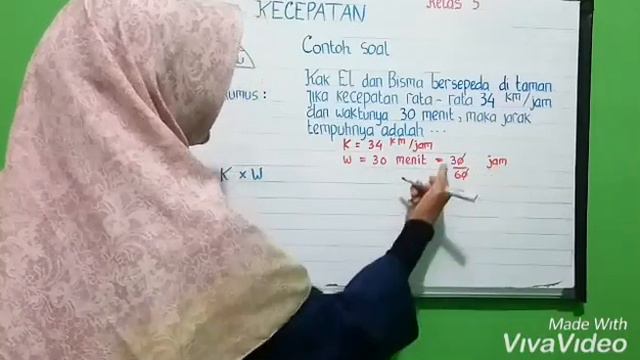 KECEPATAN
Kelas 5
Contoh soal
Kak El dan Bisma bersepeda di taman
Jika kecepatan rata-rata 34 km/jam
dan waktunya 30 menit, maka jarak
tempuhnya adalah ...
K = 34 km/jam
W = 30 menit = 30/60 jam
K × W
Made With
VivaVideo